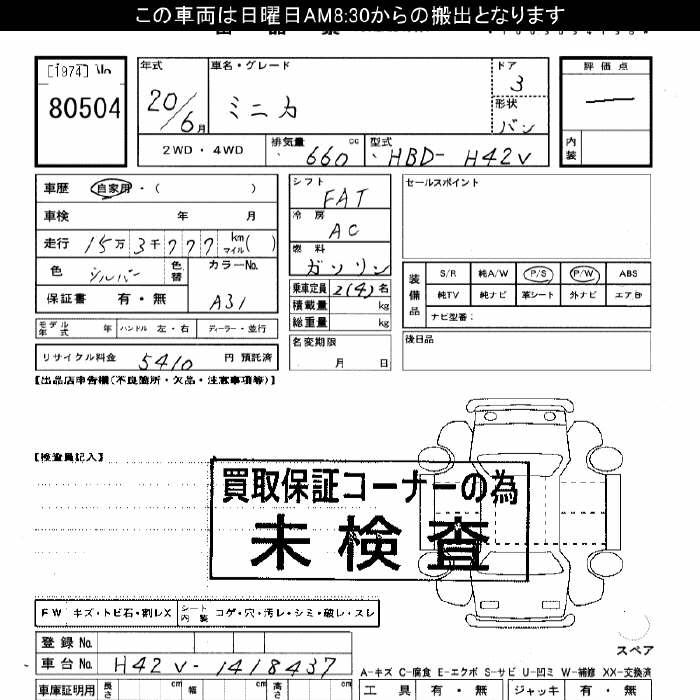 この車両は日曜日AM8:30からの搬出となります
[1974] No
80504
年式 車名・グレード ドア 評価点
20/6月 ミニカ 3
形状
バン
2WD・4WD 排気量 660 cc 型式 HBD- H42V 内装
車歴 自家用・( )
車検 年 月
走行 15万3千777 km マイル( )
色 シルバー 色替 カラーNo. A31
保証書 有・無
モデル年式 年 ハンドル 左・右 ディーラー・並行
リサイクル料金 5410 円 預託済
シフト FAT
冷房 AC
燃料 ガソリン
乗車定員 2(4)名
積載量 kg
総重量 kg
名変期限
月 日
セールスポイント
装備品 S/R 純A/W P/S P/W ABS
純TV 純ナビ 革シート 外ナビ エアB
ナビ型番:
後日品
【出品店申告欄(不良箇所・欠品・注意事項等)】
【検査員記入】
買取保証コーナーの為
未検査
FW キズ・トビ石・割レX シート内装 コゲ・穴・汚レ・シミ・破レ・スレ
登録No.
車台No. H42V-1418437
車庫証明用 長さ cm 幅 cm 高さ cm
スペア
A-キズ C-腐食 E-エクボ S-サビ U-凹ミ W-補修 XX-交換済
工具 有・無 ジャッキ 有・無